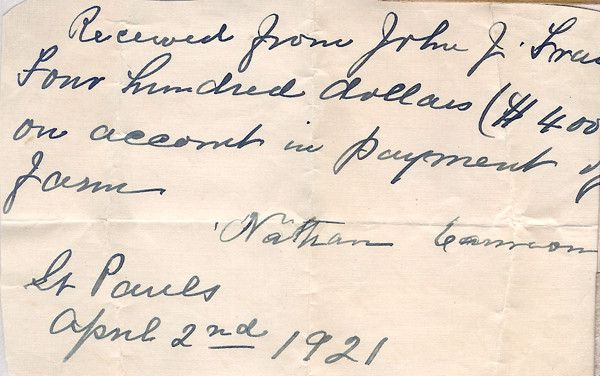 Received from John J.
Four hundred dollars ($400
on account in payment of
farm
Nathan
St Pauls
April 2nd 1921